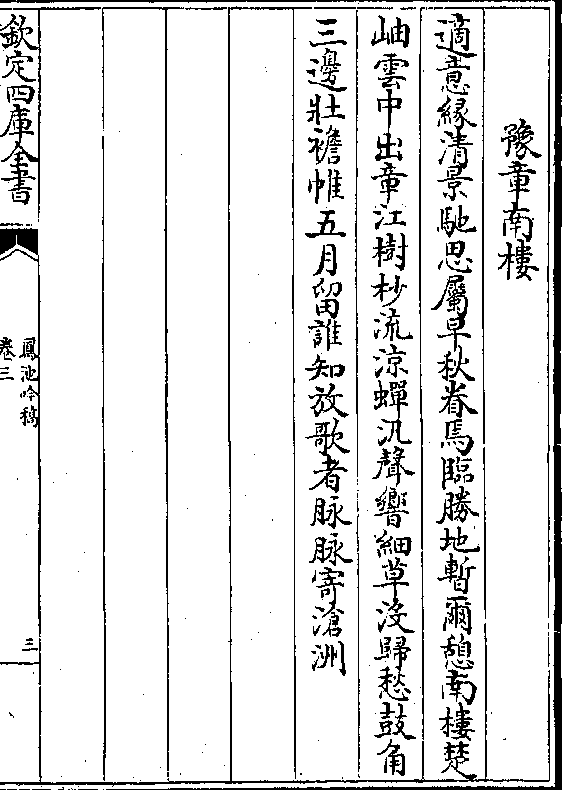 豫章南樓
適意緣清景馳思屬早秋眷焉臨勝地暫爾憩南樓楚
岫雲中出章江樹杪流涼蟬汎聲響細草没歸愁鼓角
三邊壯襜帷五月留誰知放歌者脉脉寄滄洲
欽定四庫全書
鳳池吟稿
卷三
三